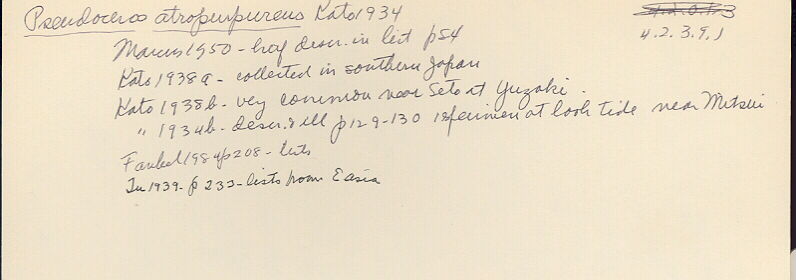 Pseudoceros atropurpureus Kato 1934
4.2.3.9.1
Marcus 1950 - brief descr. in list p84
Kato 1938a - collected in southern Japan
Kato 1938b - very common near Seto at Yuzaki.
" 1934b - descr. & ill p129-130 1 specimen at low tide near Mitsui
Faubel 1984 p208 - lists
Tu 1939 - p 233 - lists from E Asia